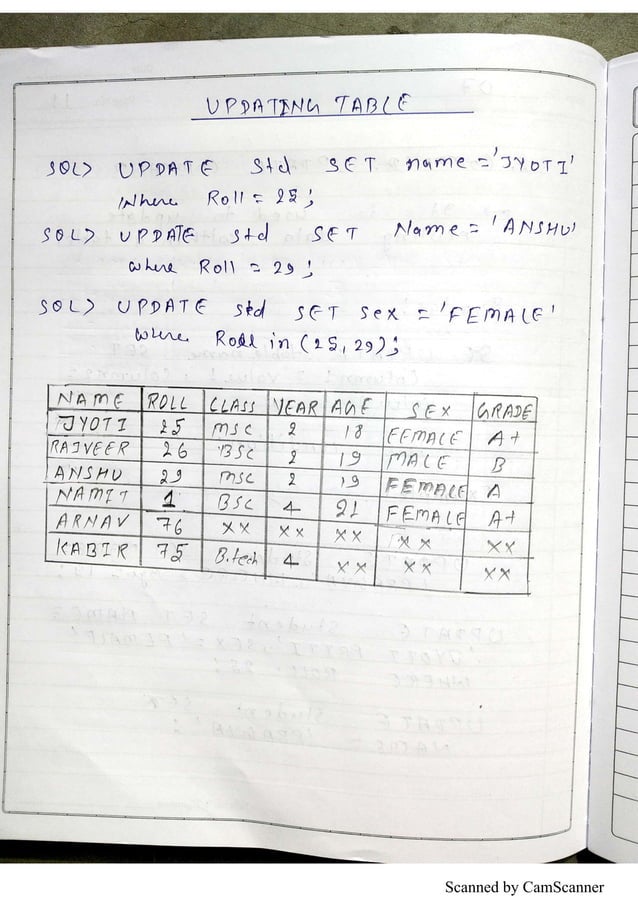 UPDATING TABLE
SQL> UPDATE Std SET name = 'JYOTI'
Where Roll = 25;
SQL> UPDATE Std SET Name = 'ANSHU'
where Roll = 29;
SQL> UPDATE std SET Sex = 'FEMALE'
where Roll in (25, 29);
NAME ROLL CLASS YEAR AGE SEX GRADE
JYOTI 25 MSC 2 18 FEMALE A+
RAJVEER 26 BSC 2 19 MALE B
ANSHU 29 MSC 2 19 FEMALE A
NAMIT 1 BSC 4 21 FEMALE A+
ARNAV 76 XX XX XX XX XX
KABIR 75 B.tech 4 XX XX XX
Scanned by CamScanner